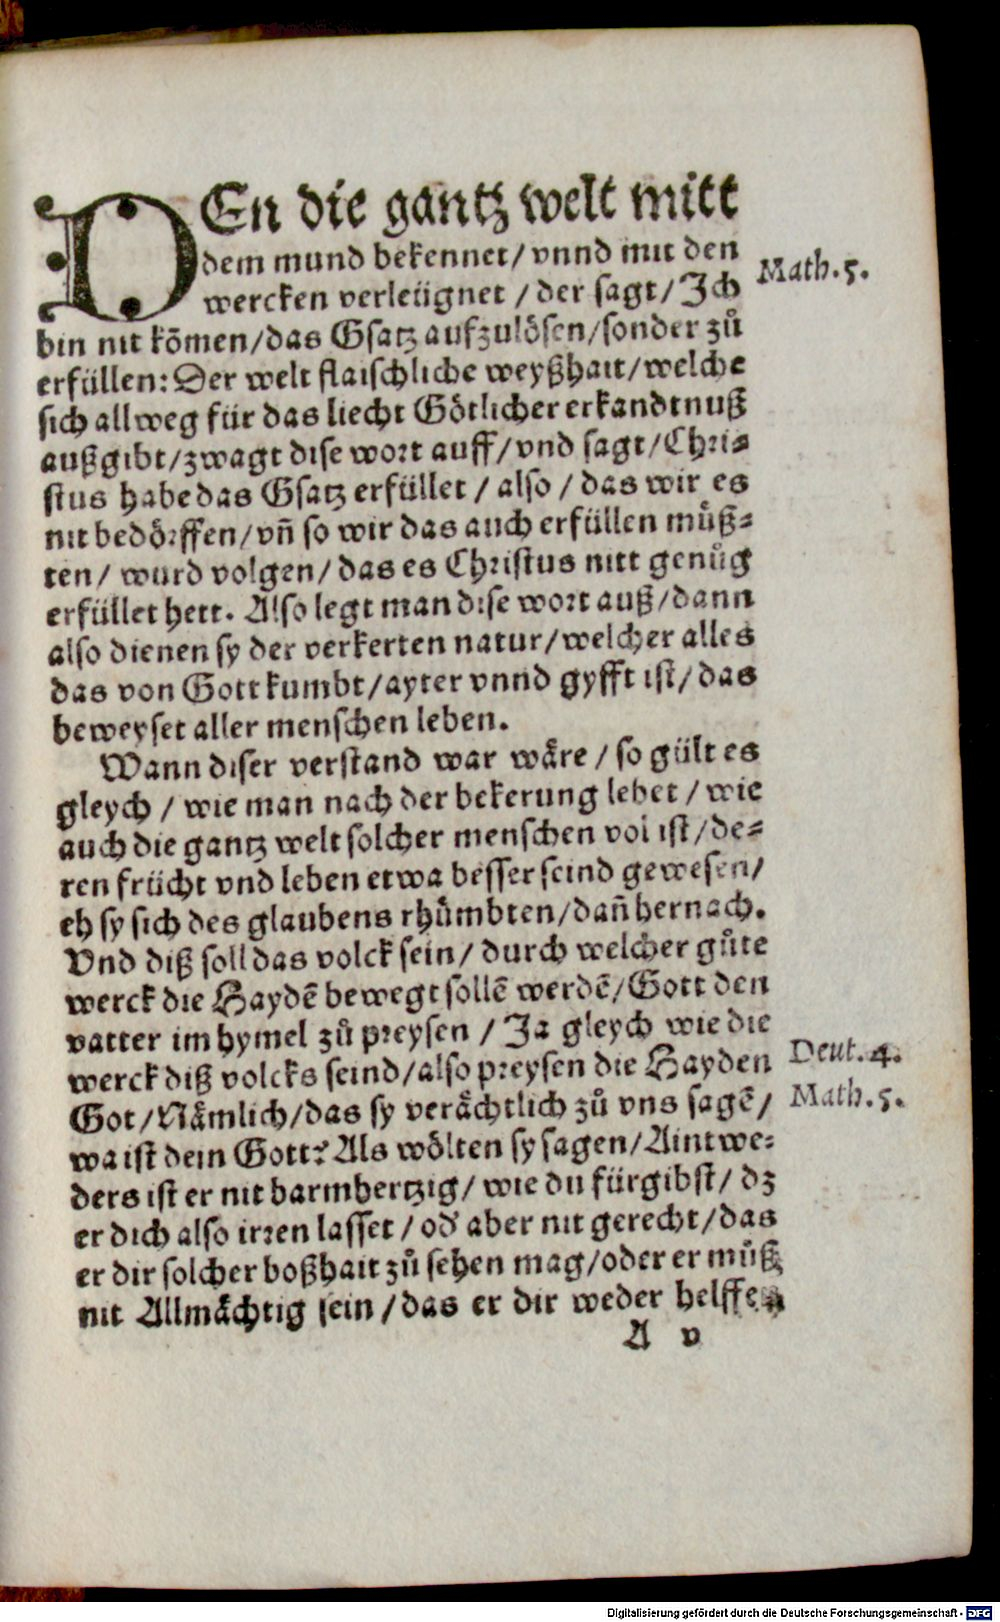 DEn die gantz welt mitt
dem mund bekennet / vnnd mit den
wercken verleügnet / der sagt / Ich
Math. 5.
bin nit kōmen / das Gsatz aufzulösen / sonder zů
erfüllen: Der welt flaischliche weyßhait / welche
sich allweg für das liecht Götlicher erkandtnuß
außgibt / zwagt dise wort auff / vnd sagt / Chri⸗
stus habe das Gsatz erfüllet / also / das wir es
nit bedörffen / vn̄ so wir das auch erfüllen můß⸗
ten / wurd volgen / das es Christus nitt genůg
erfüllet hett. Also legt man dise wort auß / dann
also dienen sy der verkerten natur / welcher alles
das von Gott kumbt / ayter vnnd gyfft ist / das
beweyset aller menschen leben.
Wann diser verstand war wäre / so gült es
gleych / wie man nach der bekerung lebet / wie
auch die gantz welt solcher menschen vol ist / de⸗
ren frücht vnd leben etwa besser seind gewesen /
eh sy sich des glaubens rhümbten / dan̄ hernach.
Vnd diß soll das volck sein / durch welcher gůte
werck die Haydē bewegt sollē werdē / Gott den
vatter im hymel zů preysen / Ja gleych wie die
werck diß volcks seind / also preysen die Hayden
Deut. 4.
Got / Nämlich / das sy verächtlich zů vns sagē /
Math. 5.
wa ist dein Gott? Als wölten sy sagen / Aintwe⸗
ders ist er nit barmhertzig / wie du fürgibst / dz
er dich also irren lasset / od' aber nit gerecht / das
er dir solcher boßhait zů sehen mag / oder er můß
nit Allmächtig sein / das er dir weder helffen
A v
Digitalisierung gefördert durch die Deutsche Forschungsgemeinschaft - DFG